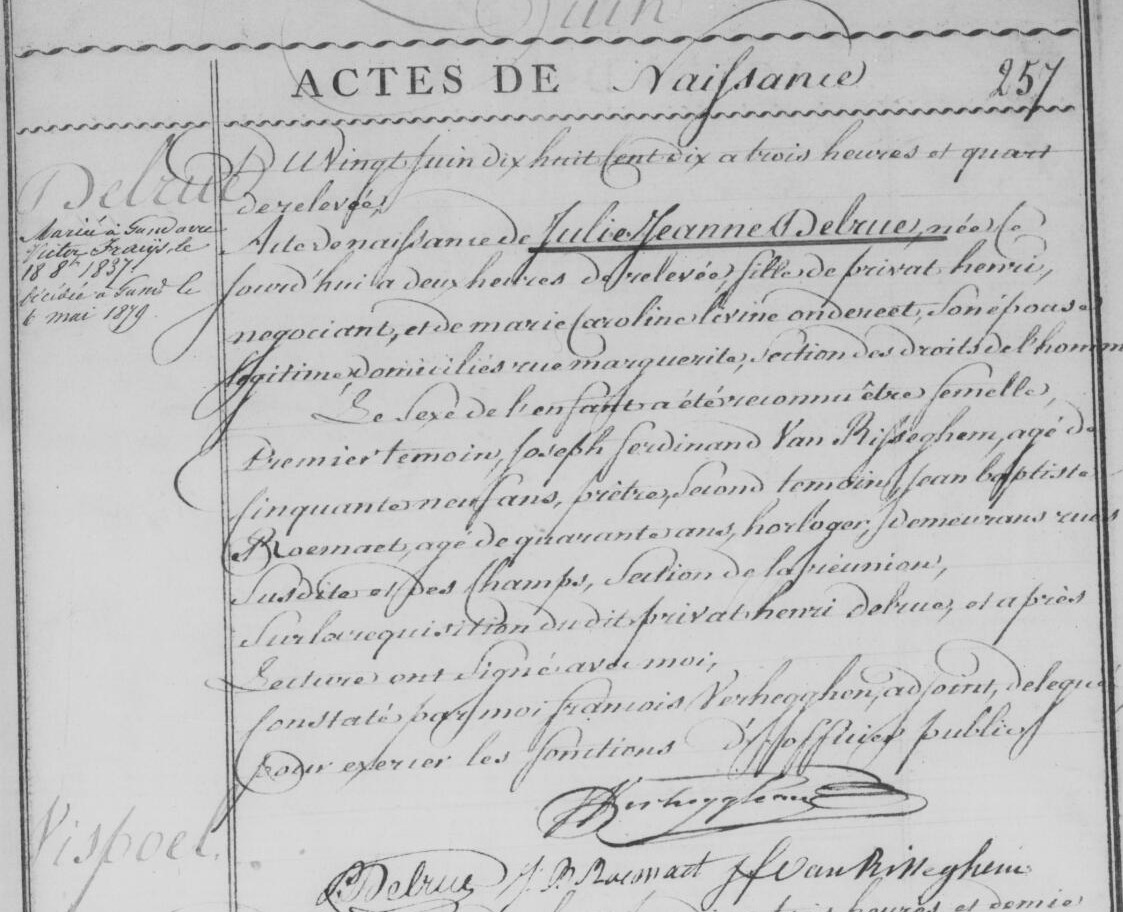 Juin
ACTES DE Naissance 257
Delrue
Mariée à Gand avec
Victor Fraijs, le
18 8bre 1837
décédée à Gand le
6 mai 1879.
DU Vingt Juin dix huit Cent dix a trois heures et quart
de relevée,
Acte de naissance de Julie Jeanne Delrue, née Ce
jourd'hui a deux heures de relevée, fille de privat henri,
negociant, et de marie Caroline livine ondereet, Son épouse
legitime, domiciliés rue marguerite, Section des droits de l'homme
Le Sexe de l'enfant a été reconnu être femelle,
Premier temoin, Joseph ferdinand Van Risseghem, agé de
Cinquante neuf ans, prêtre, Second temoin, Jean baptiste
Roemaet, agé de quarante ans, horloger, demeurans rues
Susdite et des Champs, Section de la réunion,
Sur la requisition du dit privat henri Delrue, et après
Lecture ont Signé avec moi,
Constaté par moi francois Verhegghen, adjoint, delegué
pour exercer les fonctions d'officier public
Verhegghen
P. Delrue J. B. Roemaet J f Van Risseghem
Vispoel.
heures et demie